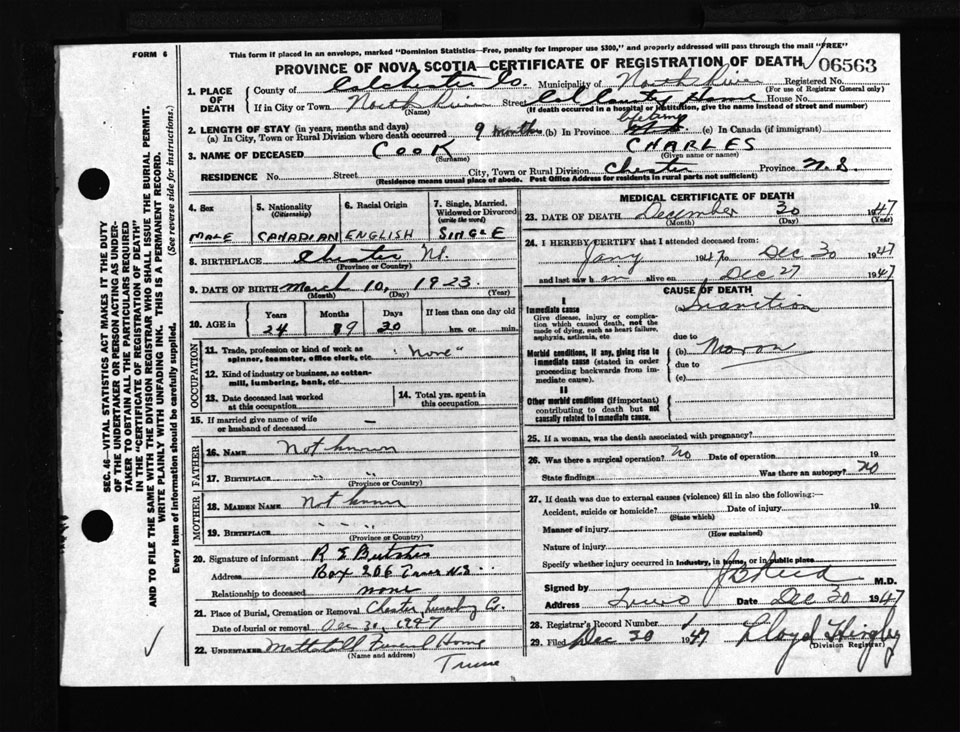 FORM 6
This form if placed in an envelope, marked "Dominion Statistics—Free, penalty for improper use $300," and properly addressed will pass through the mail "FREE"
PROVINCE OF NOVA SCOTIA—CERTIFICATE OF REGISTRATION OF DEATH 06563
1. PLACE OF DEATH County of Colchester Co. Municipality of North River Registered No.
(For use of Registrar General only)
If in City or Town North River Street Col County Home House No.
(Name) (If death occurred in a hospital or institution, give the name instead of street and number)
2. LENGTH OF STAY (in years, months and days)
(a) In City, Town or Rural Division where death occurred 9 months (b) In Province lifetime (c) In Canada (if immigrant)
3. NAME OF DECEASED COOK CHARLES
(Surname) (Given name or names)
RESIDENCE No. Street City, Town or Rural Division Chester Province N.S.
(Residence means usual place of abode. Post Office Address for residents in rural parts not sufficient)
4. Sex 5. Nationality (Citizenship) 6. Racial Origin 7. Single, Married, Widowed or Divorced (write the word)
MALE CANADIAN ENGLISH SINGLE
8. BIRTHPLACE Chester N.S.
(Province or Country)
9. DATE OF BIRTH March 10, 1923
(Month) (Day) (Year)
10. AGE in Years Months Days If less than one day old
24 9 20 hrs. or min.
OCCUPATION
11. Trade, profession or kind of work as spinner, teamster, office clerk, etc. "none"
12. Kind of industry or business, as cotton-mill, lumbering, bank, etc.
13. Date deceased last worked at this occupation
14. Total yrs. spent in this occupation
15. If married give name of wife or husband of deceased —
FATHER
16. NAME Not known
17. BIRTHPLACE " "
(Province or Country)
MOTHER
18. MAIDEN NAME Not known
19. BIRTHPLACE
(Province or Country)
20. Signature of informant R E Butcher
Address Box 206 Truro N.S.
Relationship to deceased none
21. Place of Burial, Cremation or Removal Chester Lunenburg Co.
Date of burial or removal Dec 31, 1947
22. UNDERTAKER Mattatall Funeral Home
(Name and address)
Truro
MEDICAL CERTIFICATE OF DEATH
23. DATE OF DEATH December 30 1947
(Month) (Day)
24. I HEREBY CERTIFY that I attended deceased from:
Jany 1947 to Dec 30 1947
and last saw him alive on Dec 27 1947
CAUSE OF DEATH
I
Immediate cause Inanition
Give disease, injury or complication which caused death, not the mode of dying, such as heart failure, asphyxia, asthenia, etc
due to
Morbid conditions, if any, giving rise to immediate cause (stated in order proceeding backwards from immediate cause).
(b) Moron
due to
(c)
II
Other morbid conditions (if important) contributing to death but not causally related to immediate cause.
25. If a woman, was the death associated with pregnancy?
26. Was there a surgical operation? no Date of operation 19
State findings Was there an autopsy? no
27. If death was due to external causes (violence) fill in also the following:—
Accident, suicide or homicide? Date of injury 19
(State which)
Manner of injury
(How sustained)
Nature of injury
Specify whether injury occurred in industry, in home, or in public place
Signed by J B Reid M.D.
Address Truro Date Dec 30 1947
28. Registrar's Record Number 1
29. Filed Dec 30 1947 Lloyd Hingley
(Division Registrar)
SEC. 46—VITAL STATISTICS ACT MAKES IT THE DUTY
OF THE UNDERTAKER OR PERSON ACTING AS UNDERTAKER TO OBTAIN ALL THE PARTICULARS REQUIRED
IN THE "CERTIFICATE OF REGISTRATION OF DEATH"
AND TO FILE THE SAME WITH THE DIVISION REGISTRAR WHO SHALL ISSUE THE BURIAL PERMIT.
WRITE PLAINLY WITH UNFADING INK. THIS IS A PERMANENT RECORD.
Every item of information should be carefully supplied. (See reverse side for instructions.)